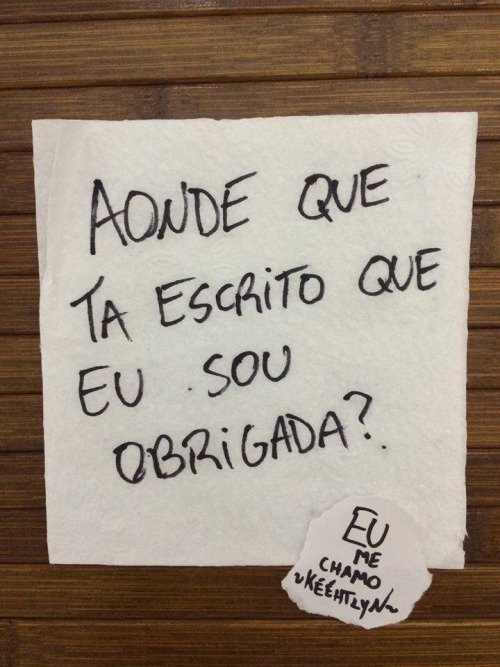 AONDE QUE
TA ESCRITO QUE
EU SOU
OBRIGADA?
EU
ME
CHAMO
~KÉÉHTLYN~